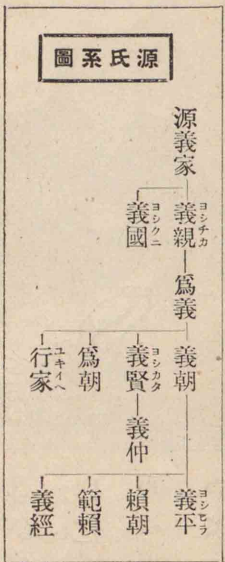 源氏系圖
源義家
義親
ヨシチカ
義國
ヨシクニ
爲義
義朝
義賢
ヨシカタ
爲朝
行家
ユキイヘ
義仲
義平
ヨシヒラ
賴朝
範賴
義經